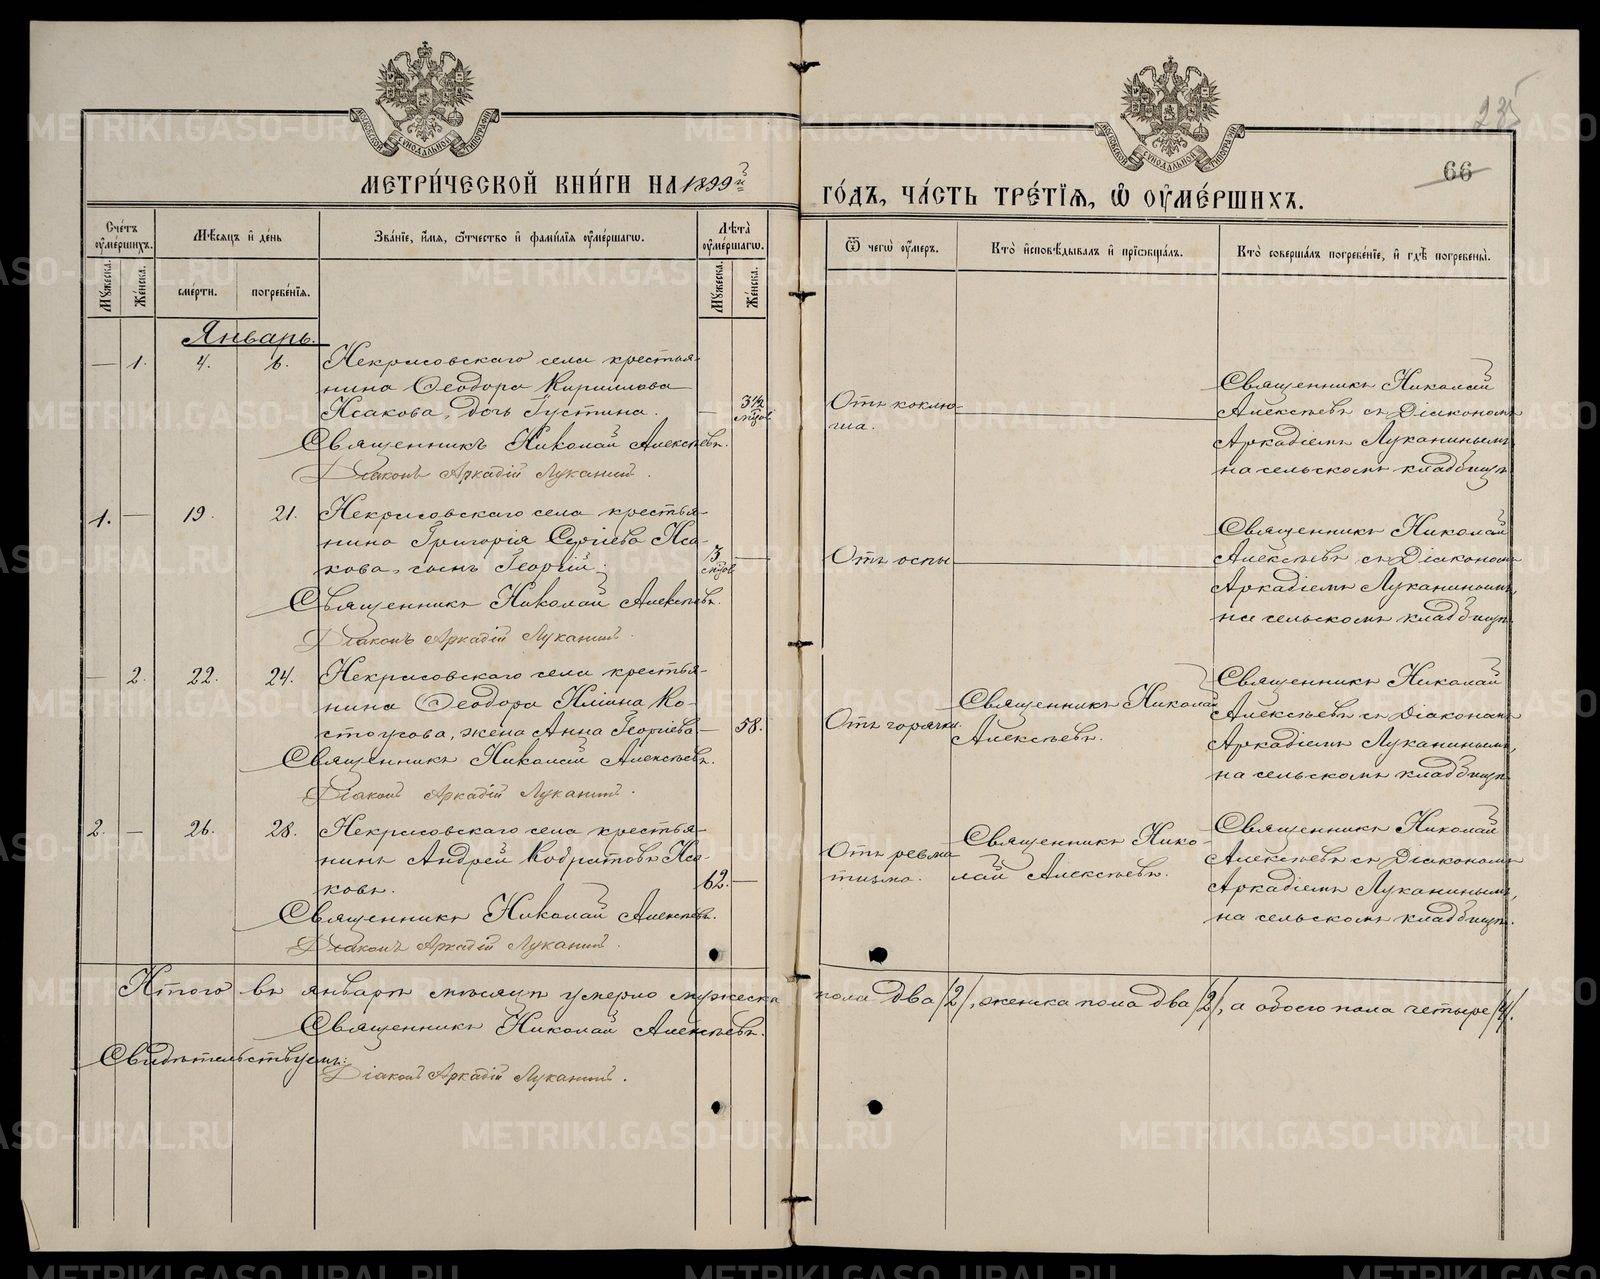 235
66
МОСКОВСКОЙ СѴНОДАЛЬНОЙ ТИПОГРАФІИ
МОСКОВСКОЙ СѴНОДАЛЬНОЙ ТИПОГРАФІИ
МЕТРИ́ЧЕСКОЙ КНИ́ГИ НА 1899й
ГО́ДЪ, ЧА́СТЬ ТРЕ́ТІѦ, Ѽ ОУ҆МЕ́РШИХЪ.
Сче́тъ оу҆ме́ршихъ.
Мѣ́сѧцъ и҆ де́нь
Зва́нїе, и҆́мѧ, ѻ҆́тчество и҆ фами́лїѧ оу҆ме́ршагѡ.
Лѣ́та оу҆ме́ршагѡ.
Ѿ чегѡ̀ оу҆́меръ.
Кто̀ и҆сповѣ́дывалъ и҆ прїѡбща́лъ.
Кто̀ соверша́лъ погребе́нїе, и҆ гдѣ̀ погребены̀.
Мꙋ́жеска.
Же́нска.
сме́рти.
погребе́нїѧ.
Мꙋ́жеска.
Же́нска.
Январь.
— 1. 4. 6. Некрасовскаго села крестья-
нина Ѳеодора Кириллова
Исакова, дочь Густина. — 3½ мѣсяц.
Священникъ Николай Алексѣевъ.
Діаконъ Аркадій Луканинъ.
Отъ коклю-
ша.
Священникъ Николай
Алексѣевъ съ Діакономъ
Аркадіемъ Луканинымъ
на сельскомъ кладбищѣ
1. — 19. 21. Некрасовскаго села крестья-
нина Григорія Сергіева Иса-
кова, сынъ Георгій. 3 мѣсяц. —
Священникъ Николай Алексѣевъ.
Діаконъ Аркадій Луканинъ.
Отъ оспы
Священникъ Николай
Алексѣевъ съ Діакономъ
Аркадіемъ Луканинымъ,
на сельскомъ кладбищѣ
— 2. 22. 24. Некрасовскаго села крестья-
нина Ѳеодора Ко-
стоусова, жена Анна Георгіева — 58.
Священникъ Николай Алексѣевъ.
Діаконъ Аркадій Луканинъ.
Отъ горячки.
Священникъ Николай
Алексѣевъ.
Священникъ Николай
Алексѣевъ съ Діакономъ
Аркадіемъ Луканинымъ,
на сельскомъ кладбищѣ
2. — 26. 28. Некрасовскаго села крестья-
нинъ Андрей Кодратовъ Иса-
ковъ. 62. —
Священникъ Николай Алексѣевъ.
Діаконъ Аркадій Луканинъ.
Отъ ревма
тизма.
Священникъ Нико-
лай Алексѣевъ.
Священникъ Николай
Алексѣевъ съ Діакономъ
Аркадіемъ Луканинымъ,
на сельскомъ кладбищѣ.
Итого въ январѣ мѣсяцѣ умерло мужеска пола два /2/, женска пола два /2/, а обоего пола четыре /4/.
Священникъ Николай Алексѣевъ.
Свидѣтельствуемъ:
Діаконъ Аркадій Луканинъ.
METRIKI.GASO-URAL.RU